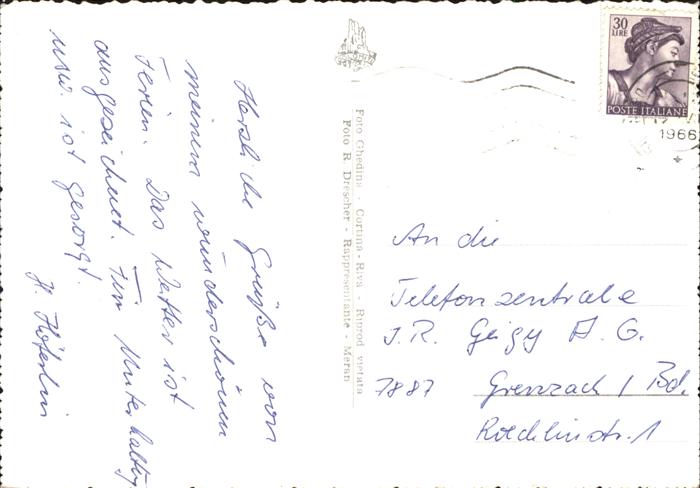 Herzliche Grüße von
meinem wunderschönen
Ferien. Das Wetter ist
ausgezeichnet. Für Unterhaltung
usw. ist gesorgt.
H. Höferlin
Foto Ghedina - Cortina-Riva - Riprod vietata
Foto R. Drescher - Rappresentante - Meran
30
LIRE
POSTE ITALIANE
1966
An die
Telefonzentrale
J.R. Geigy A.G.
7887 Grenzach / Bd.
Roechlinstr. 1